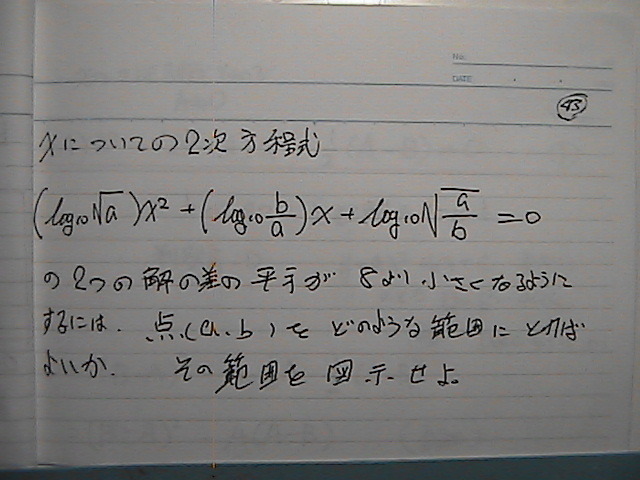 No.
DATE
43
xについての2次方程式
(log₁₀√a)x² + (log₁₀ b/a)x + log₁₀√(a/b) = 0
の2つの解の差の平方が 8より小さくなるように
するには. 点(a, b)をどのような範囲にとれば
よいか. その範囲を図示せよ。